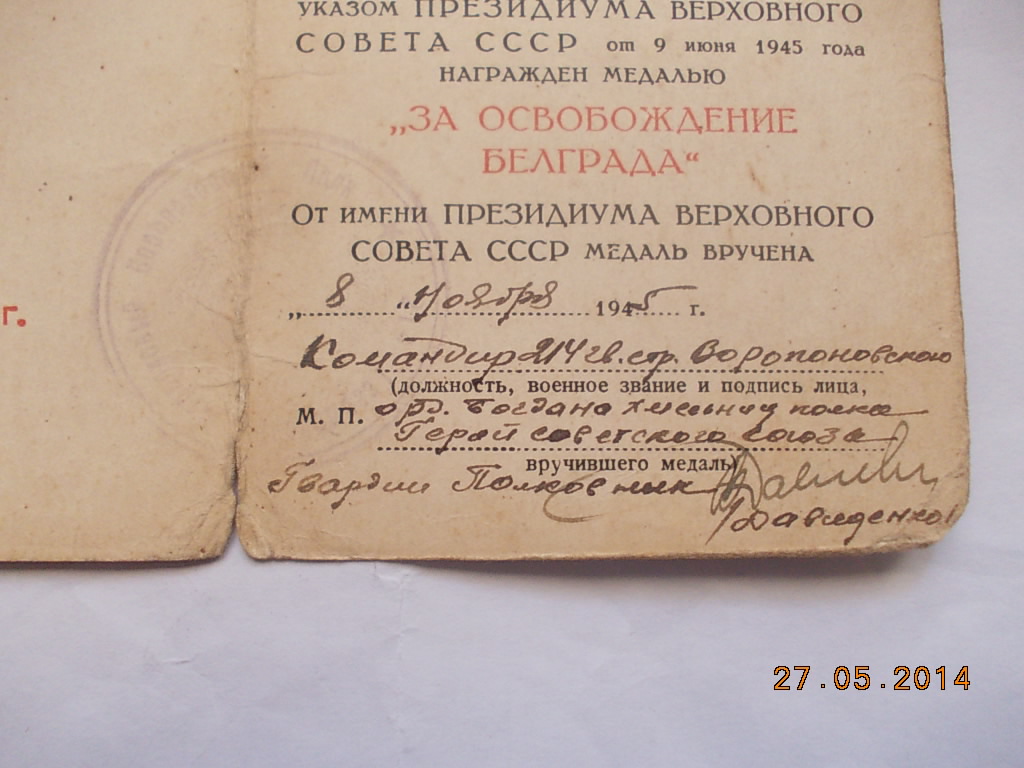 УКАЗОМ ПРЕЗИДИУМА ВЕРХОВНОГО
СОВЕТА СССР от 9 июня 1945 года
НАГРАЖДЕН МЕДАЛЬЮ
„ЗА ОСВОБОЖДЕНИЕ
БЕЛГРАДА“
От имени ПРЕЗИДИУМА ВЕРХОВНОГО
СОВЕТА СССР МЕДАЛЬ ВРУЧЕНА
„ 8 “ ноября 1945 г.
г.
Командир 214 гв. стр. Воропоновского
(должность, военное звание и подпись лица,
М. П. орд. Богдана Хмельниц полка
Герой советского союза
вручившего медаль)
Гвардии Полковник
(Давиденко)
27.05.2014